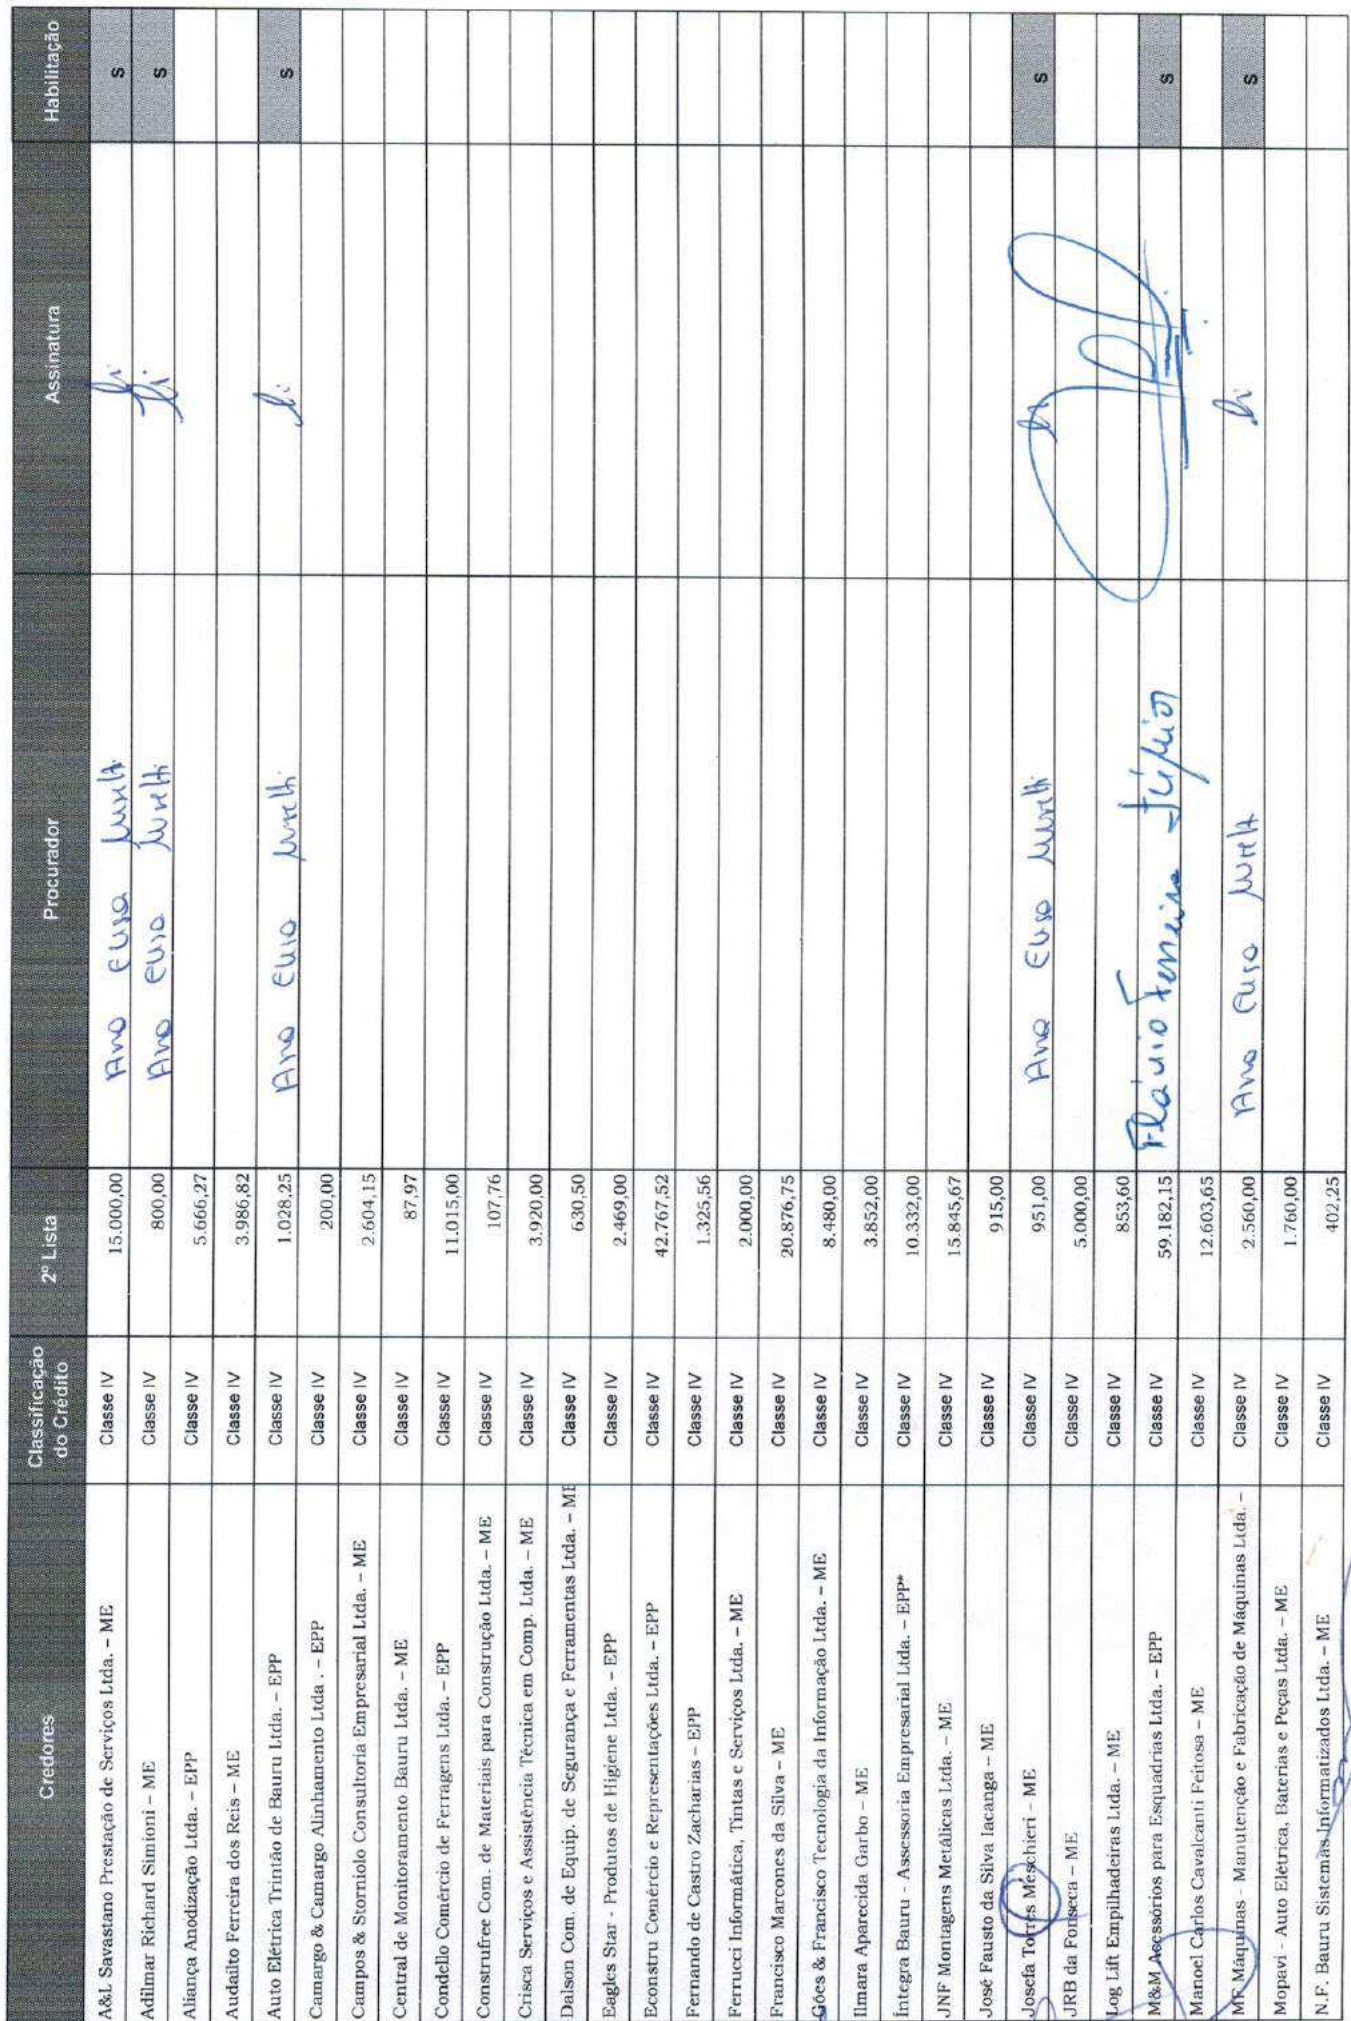 Credores Classificação do Crédito 2º Lista Procurador Assinatura Habilitação
A&L Savastano Prestação de Serviços Ltda. – ME Classe IV 15.000,00 Ana Elisa S
Adilmar Richard Simioni – ME Classe IV 800,00 Ana Elisa S
Aliança Anodização Ltda. – EPP Classe IV 5.666,27
Audailto Ferreira dos Reis – ME Classe IV 3.986,82
Auto Elétrica Trintão de Bauru Ltda. – EPP Classe IV 1.028,25 Ana Elisa S
Camargo & Camargo Alinhamento Ltda . – EPP Classe IV 200,00
Campos & Storniolo Consultoria Empresarial Ltda. – ME Classe IV 2.604,15
Central de Monitoramento Bauru Ltda. – ME Classe IV 87,97
Condello Comércio de Ferragens Ltda. – EPP Classe IV 11.015,00
Construfree Com. de Materiais para Construção Ltda. – ME Classe IV 107,76
Crisca Serviços e Assistência Técnica em Comp. Ltda. – ME Classe IV 3.920,00
Dalson Com. de Equip. de Segurança e Ferramentas Ltda. – ME Classe IV 630,50
Eagles Star - Produtos de Higiene Ltda. – EPP Classe IV 2.469,00
Econstru Comércio e Representações Ltda. – EPP Classe IV 42.767,52
Fernando de Castro Zacharias – EPP Classe IV 1.325,56
Ferrucci Informática, Tintas e Serviços Ltda. – ME Classe IV 2.000,00
Francisco Marcones da Silva – ME Classe IV 20.876,75
Góes & Francisco Tecnologia da Informação Ltda. – ME Classe IV 8.480,00
Ilmara Aparecida Garbo – ME Classe IV 3.852,00
Íntegra Bauru - Assessoria Empresarial Ltda. – EPP* Classe IV 10.332,00
JNF Montagens Metálicas Ltda. – ME Classe IV 15.845,67
José Fausto da Silva Iacanga – ME Classe IV 915,00
Josefa Torres Meschieri – ME Classe IV 951,00 Ana Elisa S
JRB da Fonseca – ME Classe IV 5.000,00
Log Lift Empilhadeiras Ltda. – ME Classe IV 853,60
M&M Acessórios para Esquadrias Ltda. – EPP Classe IV 59.182,15 Flávio Ferreira Júnior S
Manoel Carlos Cavalcanti Feitosa – ME Classe IV 12.603,65
MF Máquinas - Manutenção e Fabricação de Máquinas Ltda. – Classe IV 2.560,00 Ana Elisa S
Mopavi - Auto Elétrica, Baterias e Peças Ltda. – ME Classe IV 1.760,00
N.F. Bauru Sistemas Informatizados Ltda. – ME Classe IV 402,25